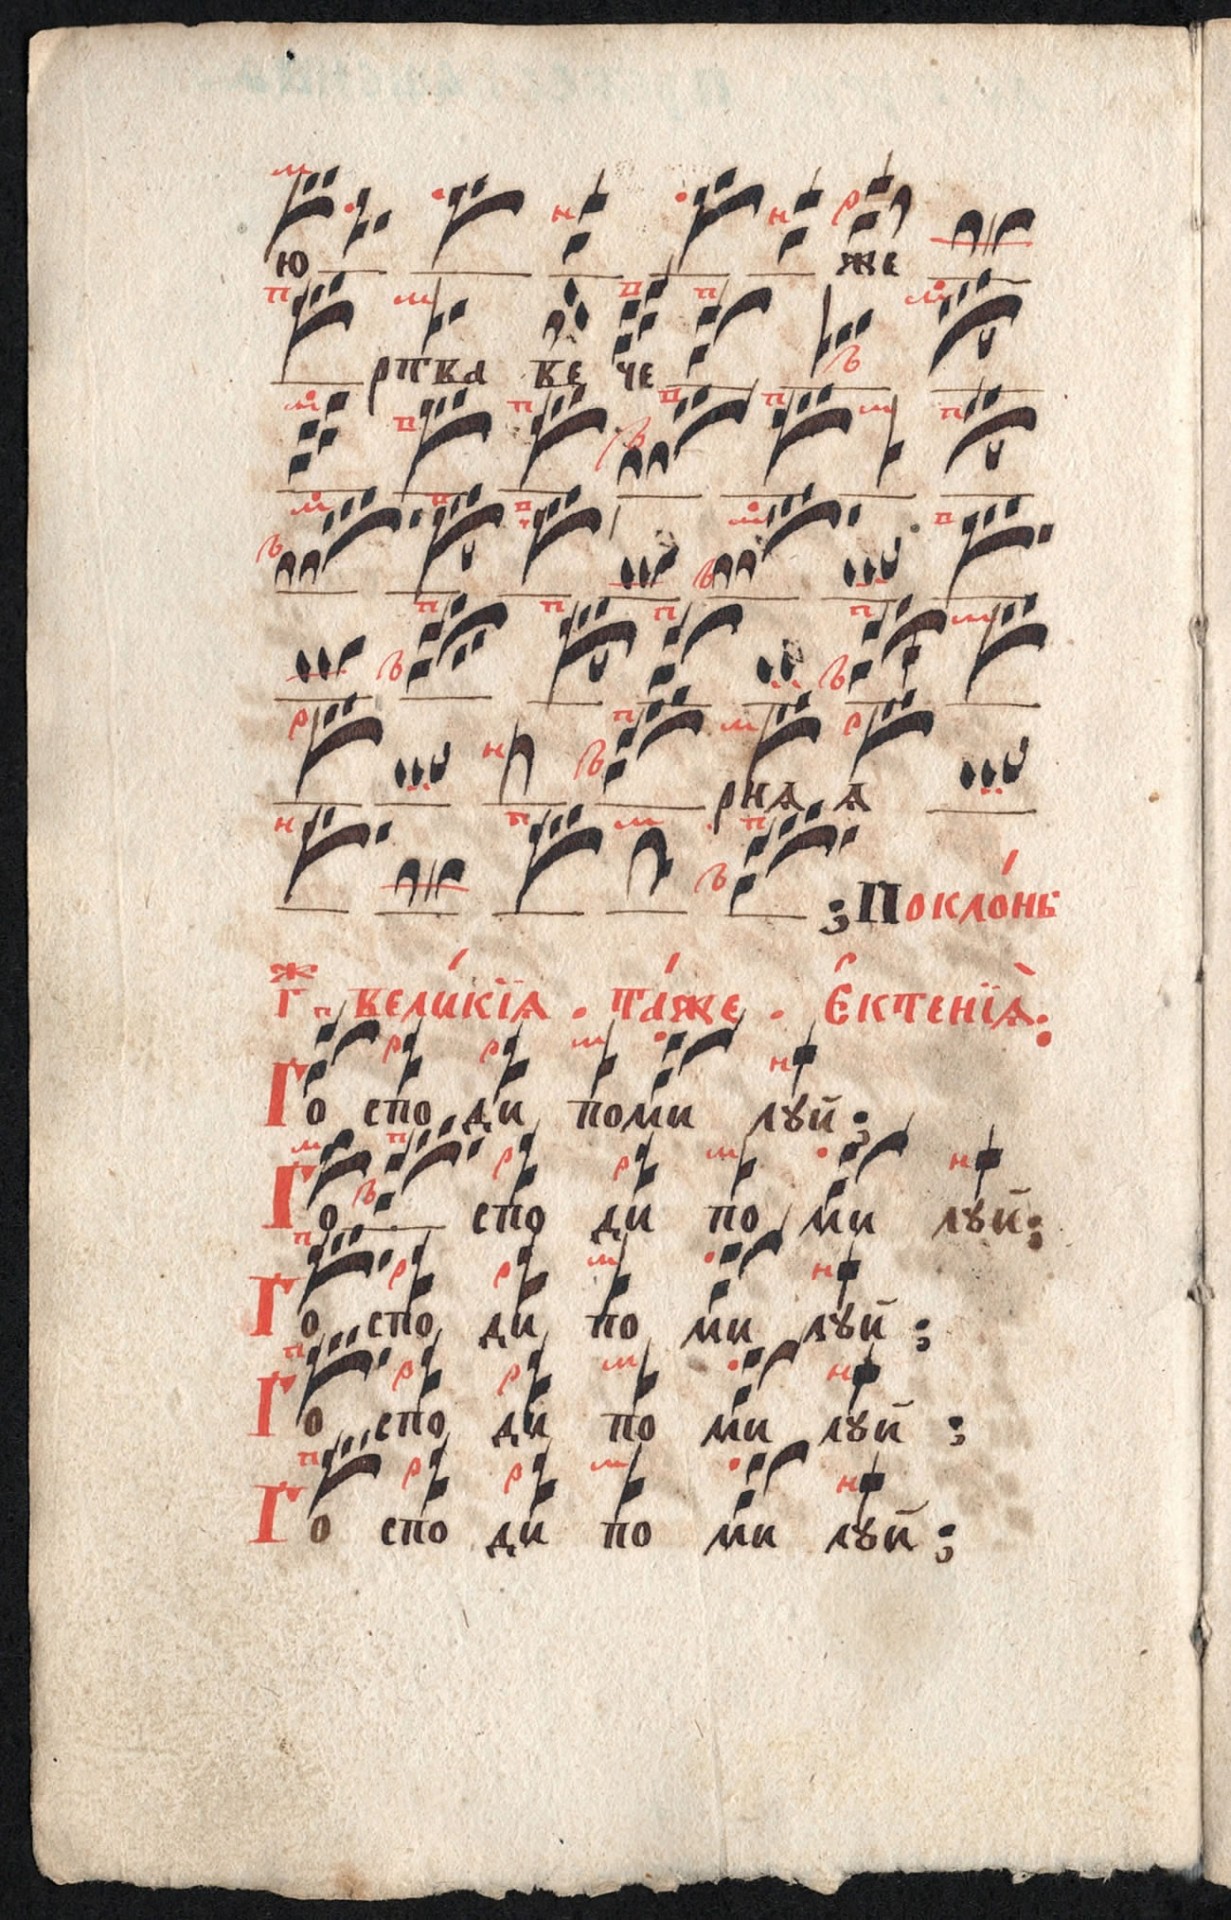 ю же
ртва ве че
рнѧ ѧ
; Покло́нъ
г҃ж вели́кїѧ . та́же . Е҆ктенїѧ̀ :
Го спо ди поми лꙋй ;
Го спо ди по ми лꙋй ;
Го спо ди по ми лꙋй ;
Го спо ди по ми лꙋй ;
Го спо ди по ми лꙋй ;